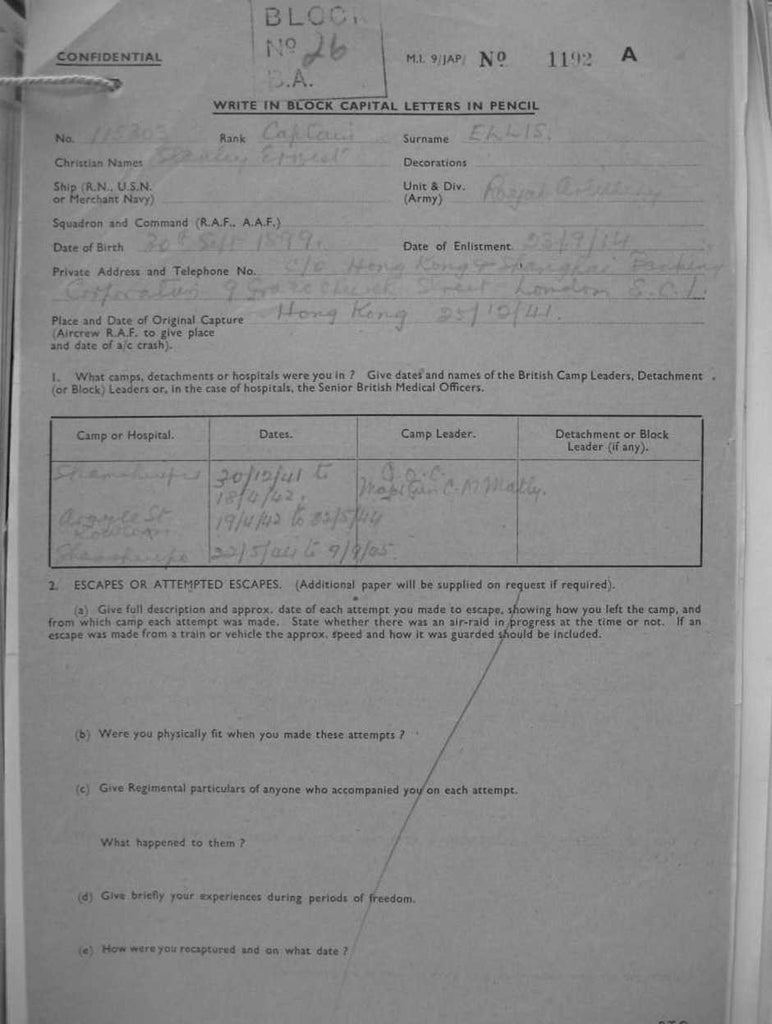 BLOCK
No 26
B.A.
CONFIDENTIAL
M.I. 9/JAP/ No 1192 A
WRITE IN BLOCK CAPITAL LETTERS IN PENCIL
No. Rank Captain Surname ELLIS.
Christian Names Stanley Ernest Decorations
Ship (R.N., U.S.N. or Merchant Navy) Unit & Div. (Army) Royal Artillery
Squadron and Command (R.A.F., A.A.F.)
Date of Birth 30th Sept 1899. Date of Enlistment 23/9/14
Private Address and Telephone No. c/o Hong Kong & Shanghai Banking
Corporation 9 Gracechurch Street London E.C.1.
Place and Date of Original Capture Hong Kong 25/12/41.
(Aircrew R.A.F. to give place
and date of a/c crash).
1. What camps, detachments or hospitals were you in ? Give dates and names of the British Camp Leaders, Detachment
(or Block) Leaders or, in the case of hospitals, the Senior British Medical Officers.
Camp or Hospital. Dates. Camp Leader. Detachment or Block
Leader (if any).
Shamshuipo 30/12/41 to G.O.C.
18/4/42. Maj Gen C.M Maltby.
Argyle St 19/4/42 to /5/44
Kowloon
Shamshuipo 22/5/44 to 9/9/45.
2. ESCAPES OR ATTEMPTED ESCAPES. (Additional paper will be supplied on request if required).
(a) Give full description and approx. date of each attempt you made to escape, showing how you left the camp, and
from which camp each attempt was made. State whether there was an air-raid in progress at the time or not. If an
escape was made from a train or vehicle the approx. speed and how it was guarded should be included.
(b) Were you physically fit when you made these attempts ?
(c) Give Regimental particulars of anyone who accompanied you on each attempt.
What happened to them ?
(d) Give briefly your experiences during periods of freedom.
(e) How were you recaptured and on what date ?